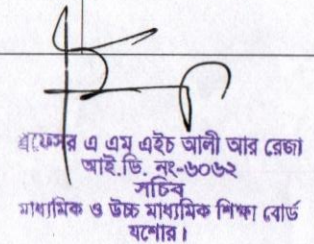 প্রফেসর এ এম এইচ আলী আর রেজা
আই.ডি. নং-৬০৬২
সচিব
মাধ্যমিক ও উচ্চ মাধ্যমিক শিক্ষা বোর্ড
যশোর।